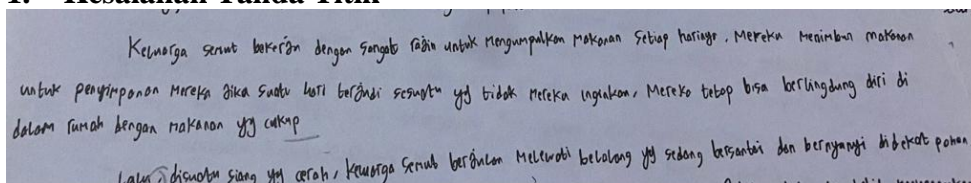 1. Kesalahan Tanda Titik
Keluarga semut bekerja dengan sangat rajin untuk mengumpulkan makanan setiap harinya. Mereka menimbun makanan
untuk penyimpanan mereka jika suatu hari terjadi sesuatu yg tidak mereka inginkan, Mereka tetap bisa berlingdung diri di
dalam rumah dengan makanan yg cukup
Lalu, disuatu siang yg cerah, keluarga semut berjalan melewati belalang yg sedang bersantai dan bernyanyi didekat pohon